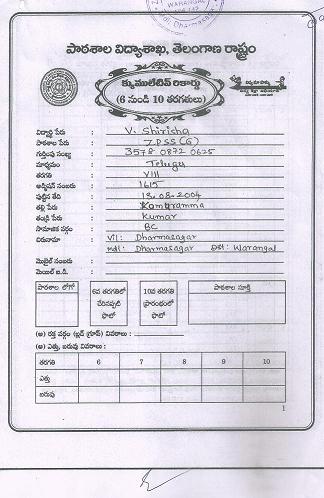 WARANGAL
Mdl: Dharmasagar
పాఠశాల విద్యాశాఖ, తెలంగాణ రాష్ట్రం
క్యుములేటివ్ రికార్డు
(6 నుండి 10 తరగతులు)
విద్యార్థి పేరు : V. Shirisha
పాఠశాల పేరు : ZPSS(G)
గుర్తింపు సంఖ్య : 3578 0872 0625
మాధ్యమం : Telugu
తరగతి : VIII
అడ్మిషన్ నంబరు : 1615
పుట్టిన తేది : 13-08-2004
తల్లి పేరు : Komuramma
తండ్రి పేరు : Kumar
సామాజిక వర్గం : BC
చిరునామా : Vil: Dharmasagar
Mdl: Dharmasagar Dist: Warangal
మొబైల్ నంబరు :
మెయిల్ ఐ.డి. :
పాఠశాల లోగో
6వ తరగతిలో చేరినప్పటి ఫొటో
10వ తరగతి ప్రారంభంలో ఫొటో
పాఠశాల సూక్తి
(అ) రక్త వర్గం (బ్లడ్ గ్రూప్) వివరాలు :
(ఆ) ఎత్తు, బరువు వివరాలు :
తరగతి 6 7 8 9 10
ఎత్తు
బరువు
1